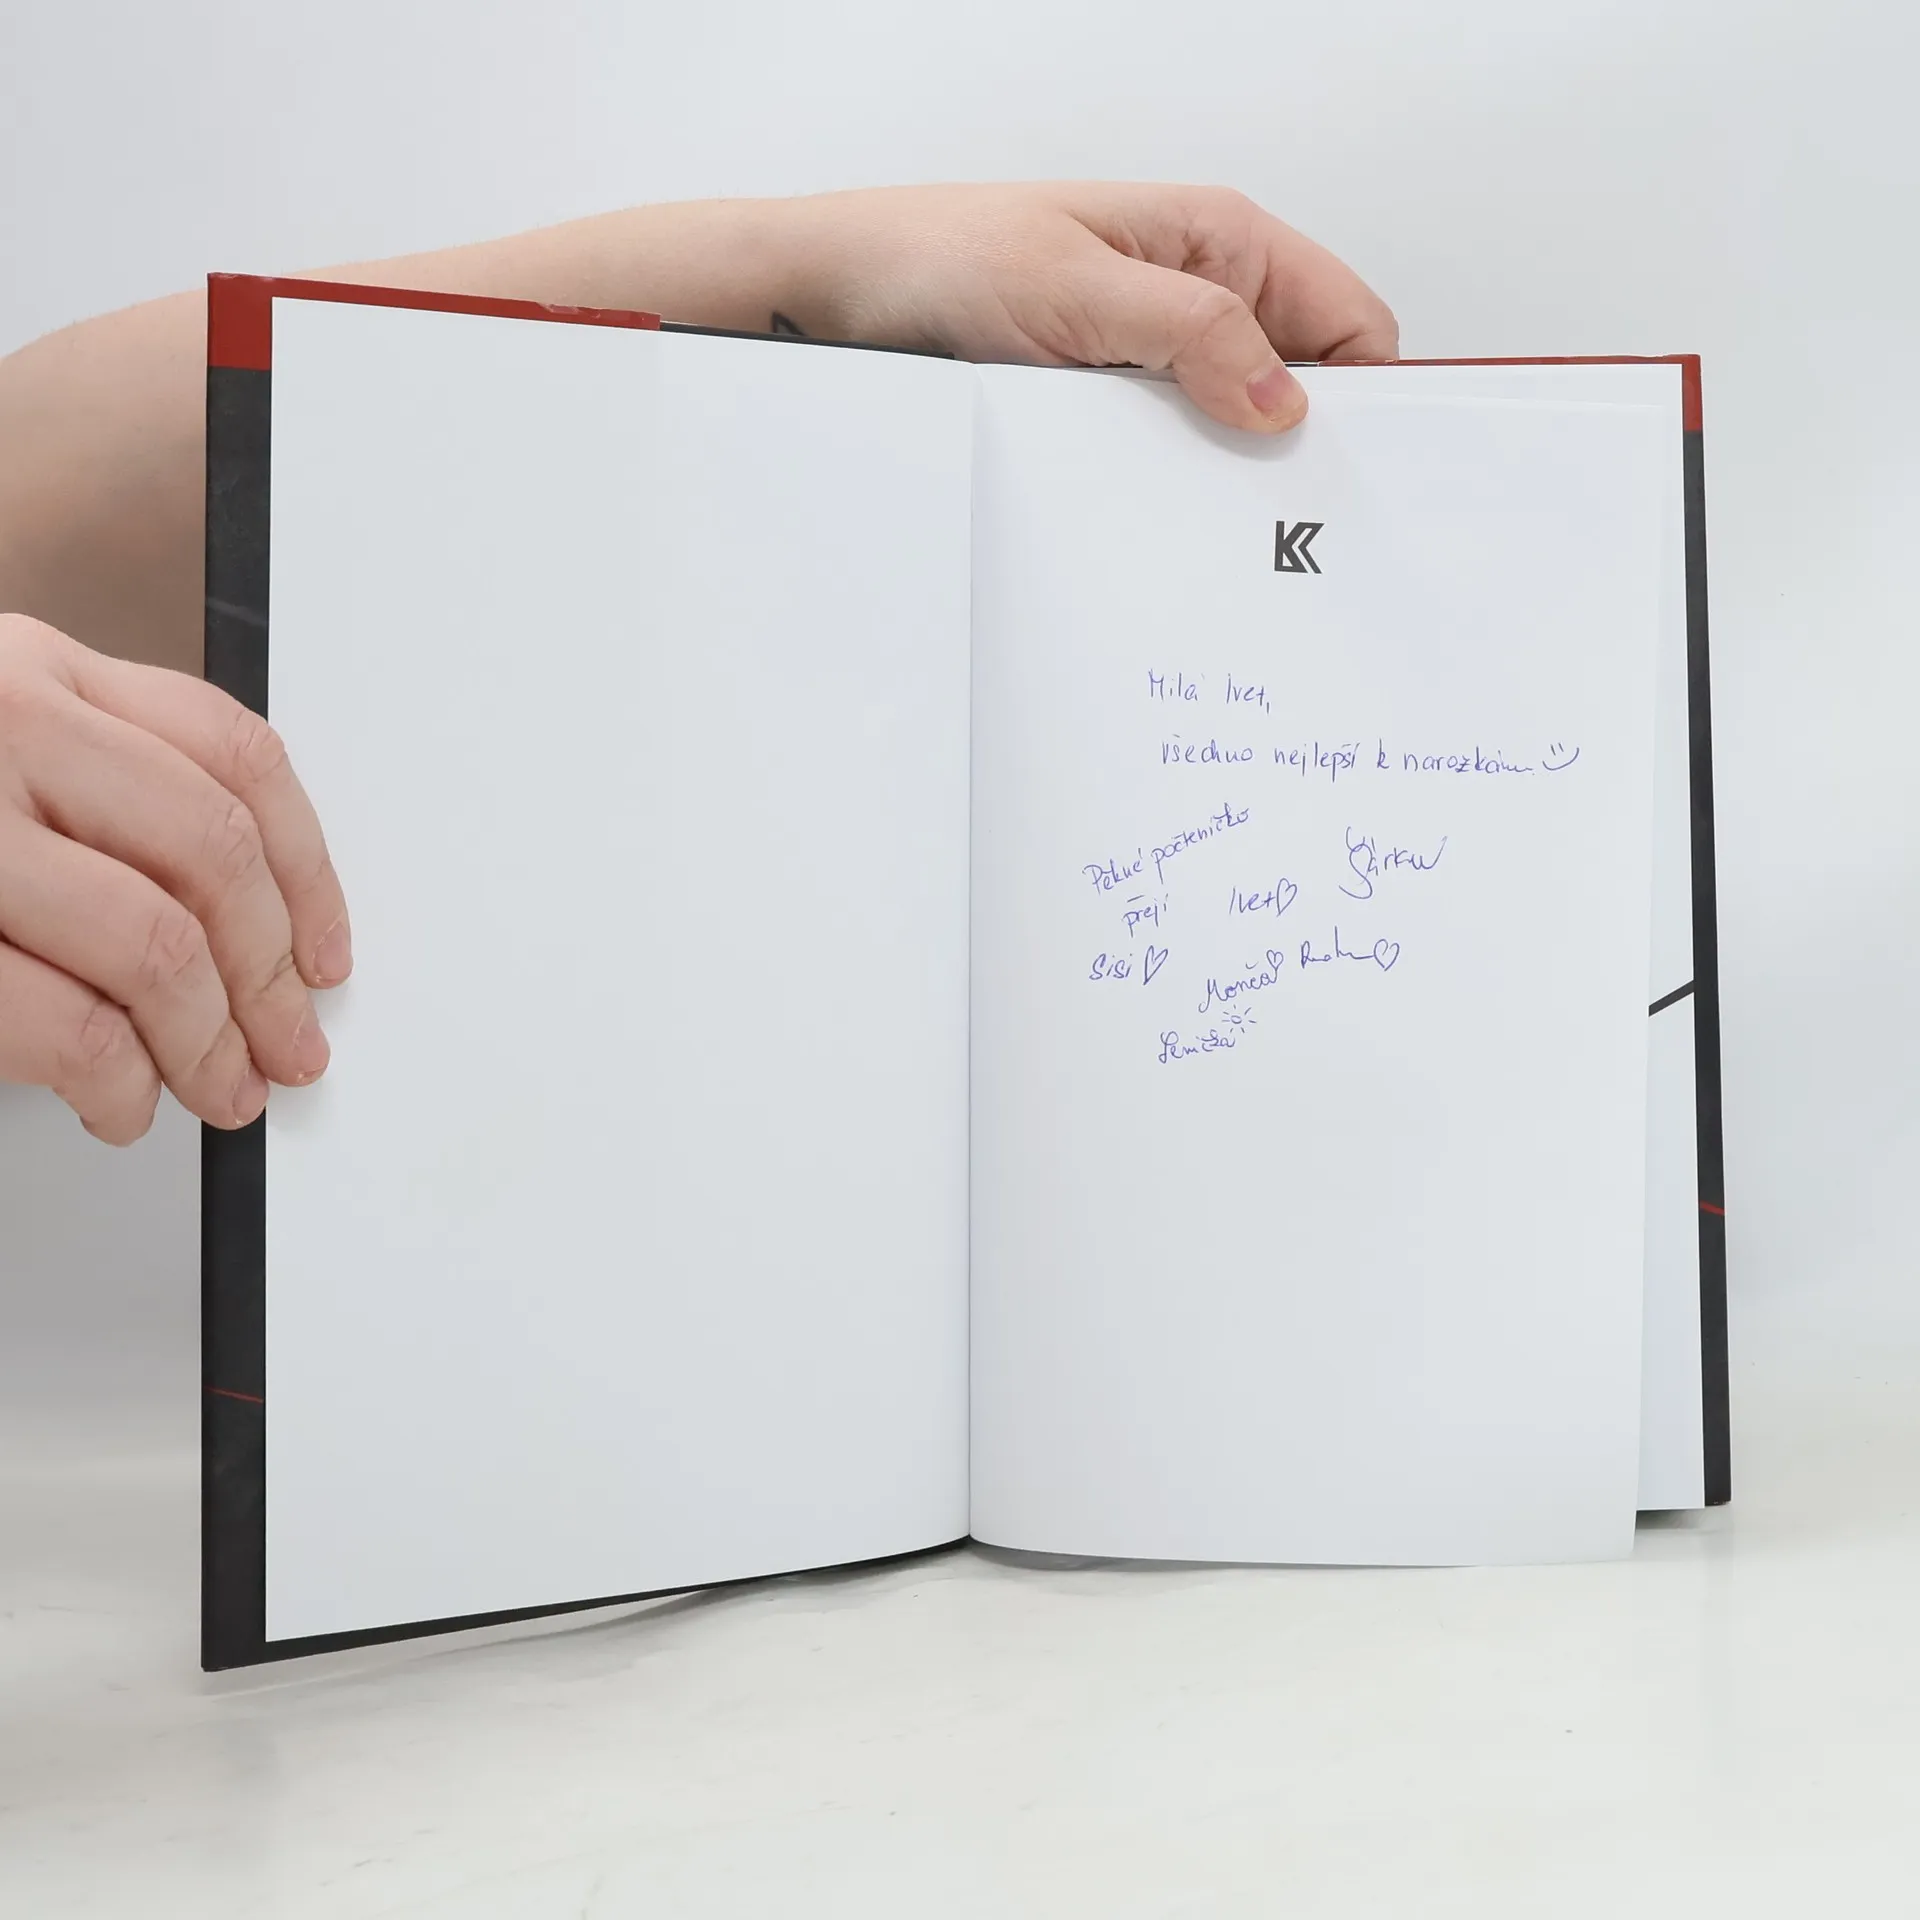 K
Milá Ivet,
všechno nejlepší k narozkám
Pěkné počteníčko
přejí
Ivet
Šárka
Sisi
Monča
Lenička